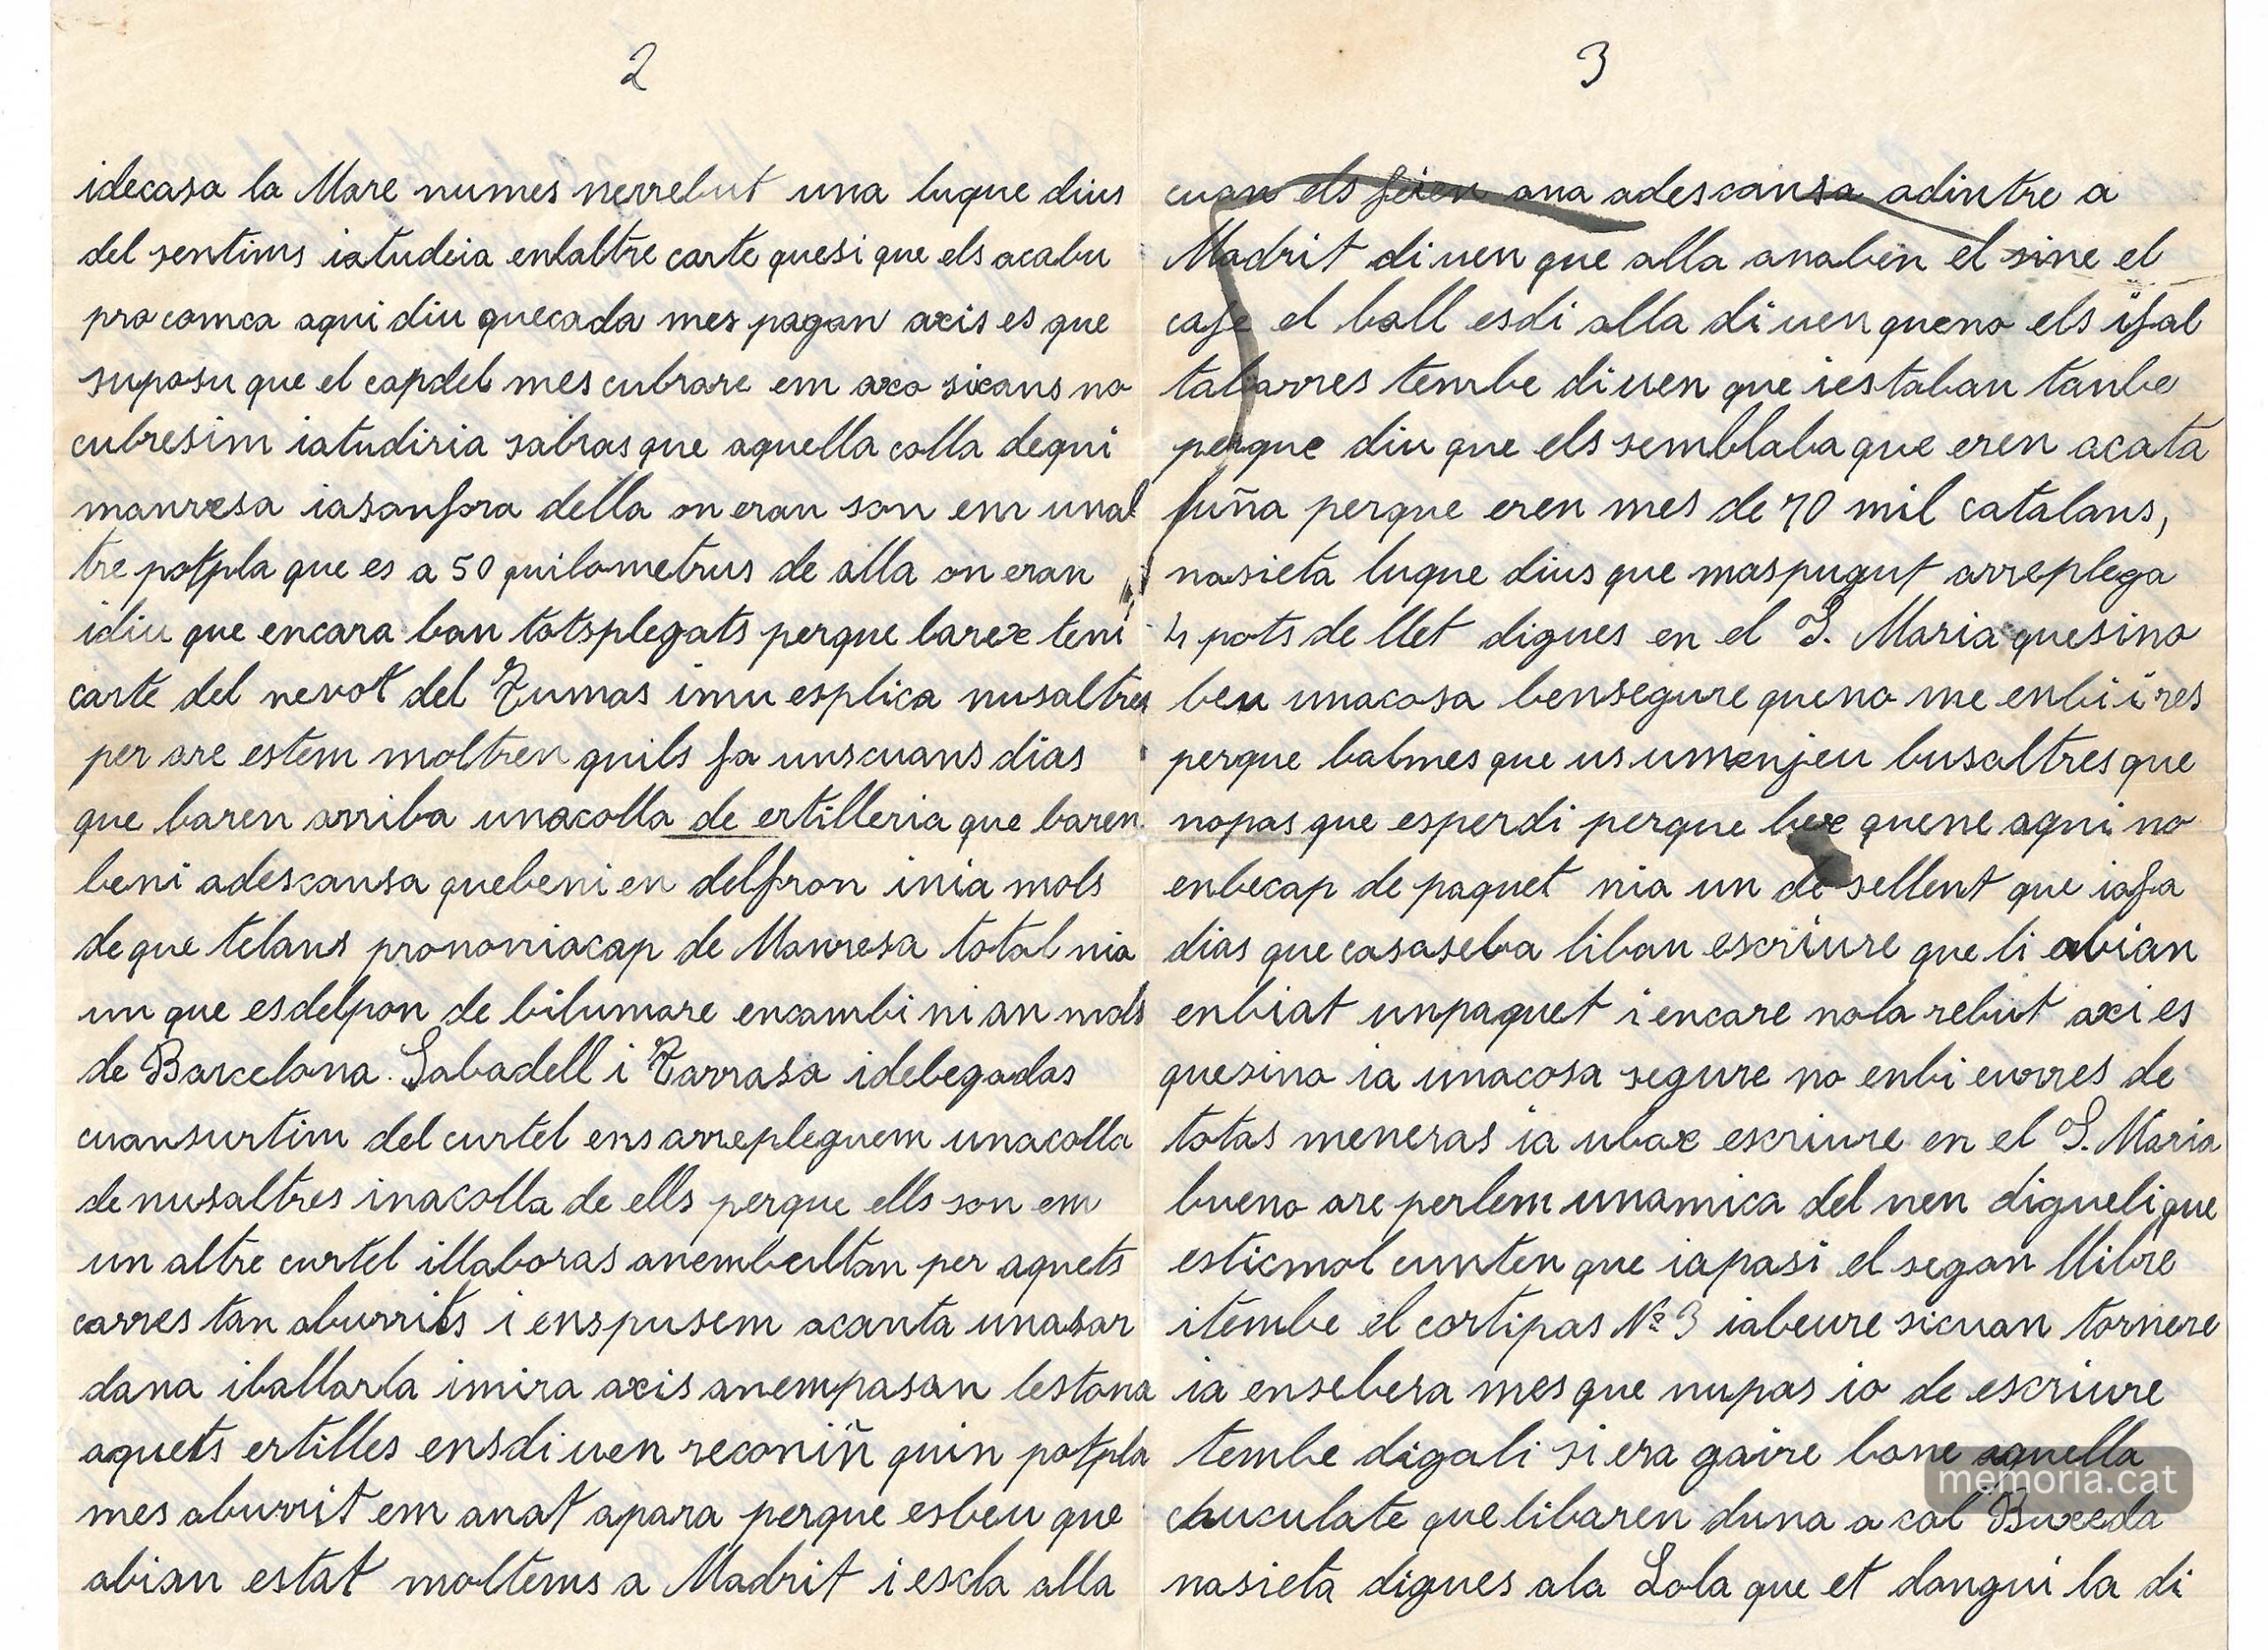 2
idecasa la Mare numes nerrebut una luque dius
del sentims iatudeia enlaltre carte quesi que els acabu
pro comca aqui diu quecada mes pagan axis es que
suposu que el capdel mes cubrare em axo sixans no
cubresim iatudiria sabras que aquella colla dequi
manresa iasonfora della on eran son em unal
tre potpla que es a 50 quilometrus de alla on eran
idiu que encara ban totsplegats perque barex teni
carte del nevot del Tumas imu esplica nusaltres
per are estem moltren quils fa unscuans dias
que baren arriba unacolla de ertilleria que baren
beni adescansa quebenien delfron inia mols
de que telans prononiacap de Manresa total nia
un que esdelpon de bilumare encambi nian mols
de Barcelona. Sabadell i Tarrasa idebegadas
cuansurtim del curtel ens arrepleguem unacolla
de nusaltres inacolla de ells perque ells son em
un altre curtel illaboras anembultan per aquets
carres tan aburrits i enspusem acanta unasar
dana iballarla imira axis anempasan lestona
aquets ertilles ensdiuen reconiñ quin potpla
mes aburrit em anat apara perque esbeu que
abian estat moltems a Madrit i escla alla
3
cuan els feien ana adescansa adintre a
Madrit diuen que alla anaben el sine el
cafe el ball esdi alla diuen queno els ifal
tabarres tembe diuen que iestaban tanbe
perque diu que els semblaba que eren acata
luña perque eren mes de 70 mil catalans,
nasieta luque dius que maspugut arreplega
4 pots de llet digues en el J. Maria quesino
beu unacosa bensegure queno me enbii res
perque balmes que us umenjeu busaltres que
nopas que esperdi perque bex quene aqui no
enbecap de paquet nia un de sellent que iafa
dias que casaseba liban escriure que li abian
enbiat unpaquet i encare nola rebut axi es
quesino ia unacosa segure no enbi eurres de
totas meneras ia ubax escriure en el J. Maria
bueno are perlem unamica del nen digueli que
esticmol cunten que iapasi el segon llibre
itembe el cortipas Nº 3 iabeure sicuan tornere
ia ensebera mes que nupas io de escriure
tembe digali si era gaire bone aquella
chuculate que libaren duna a cal Buxeda
nasieta digues ala Lola que et dongui la di
memoria.cat